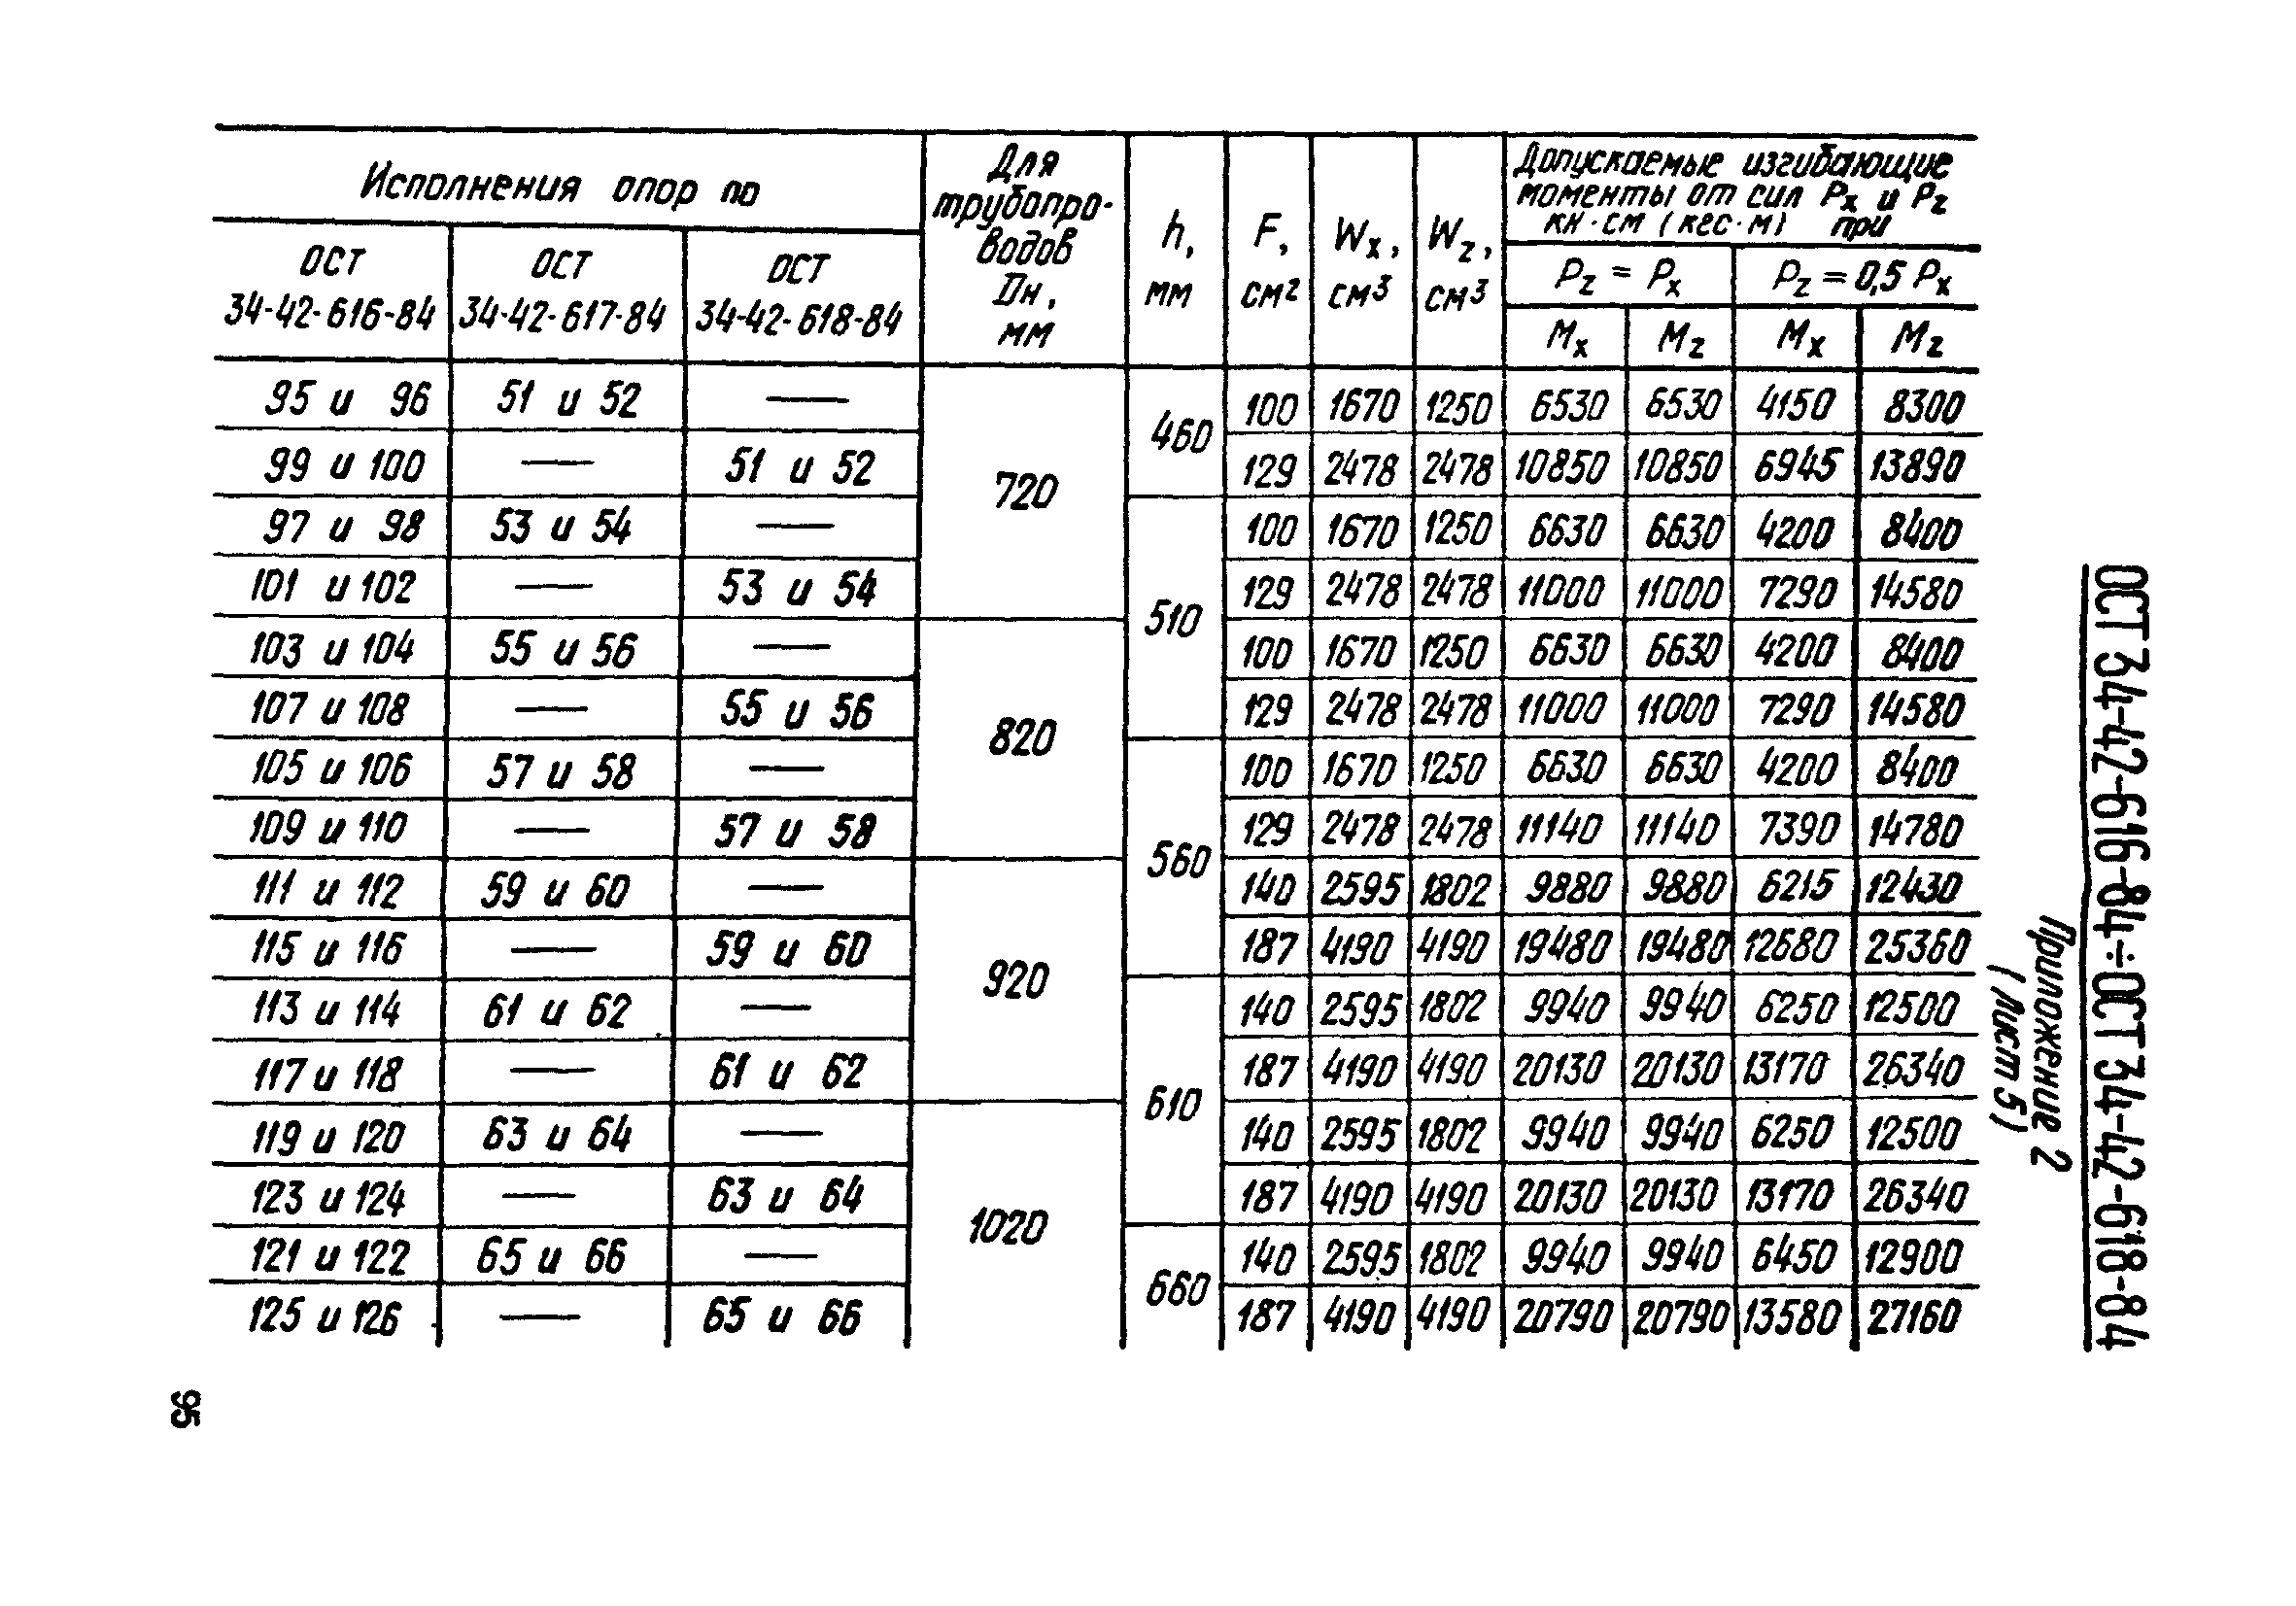 Исполнения опор по
ОСТ 34-42-616-84
ОСТ 34-42-617-84
ОСТ 34-42-618-84
Для трубопро-
водов
Dн,
мм
h, мм
F, см²
Wx, см³
Wz, см³
Допускаемые изгибающие
моменты от сил Px и Pz
кн·см (кес·м) при
Pz = Px
Pz = 0,5 Px
Mx Mz Mx Mz
95 и 96 51 и 52 — 720 460 100 1670 1250 6530 6530 4150 8300
99 и 100 — 51 и 52 129 2478 2478 10850 10850 6945 13890
97 и 98 53 и 54 — 510 100 1670 1250 6630 6630 4200 8400
101 и 102 — 53 и 54 129 2478 2478 11000 11000 7290 14580
103 и 104 55 и 56 — 820 100 1670 1250 6630 6630 4200 8400
107 и 108 — 55 и 56 129 2478 2478 11000 11000 7290 14580
105 и 106 57 и 58 — 560 100 1670 1250 6630 6630 4200 8400
109 и 110 — 57 и 58 129 2478 2478 11140 11140 7390 14780
111 и 112 59 и 60 — 920 140 2595 1802 9880 9880 6215 12430
115 и 116 — 59 и 60 187 4190 4190 19480 19480 12680 25360
113 и 114 61 и 62 — 610 140 2595 1802 9940 9940 6250 12500
117 и 118 — 61 и 62 187 4190 4190 20130 20130 13170 26340
119 и 120 63 и 64 — 1020 140 2595 1802 9940 9940 6250 12500
123 и 124 — 63 и 64 187 4190 4190 20130 20130 13170 26340
121 и 122 65 и 66 — 660 140 2595 1802 9940 9940 6450 12900
125 и 126 — 65 и 66 187 4190 4190 20790 20790 13580 27160
ОСТ 34-42-616-84÷ОСТ 34-42-618-84
Приложение 2
(Лист 5)
95